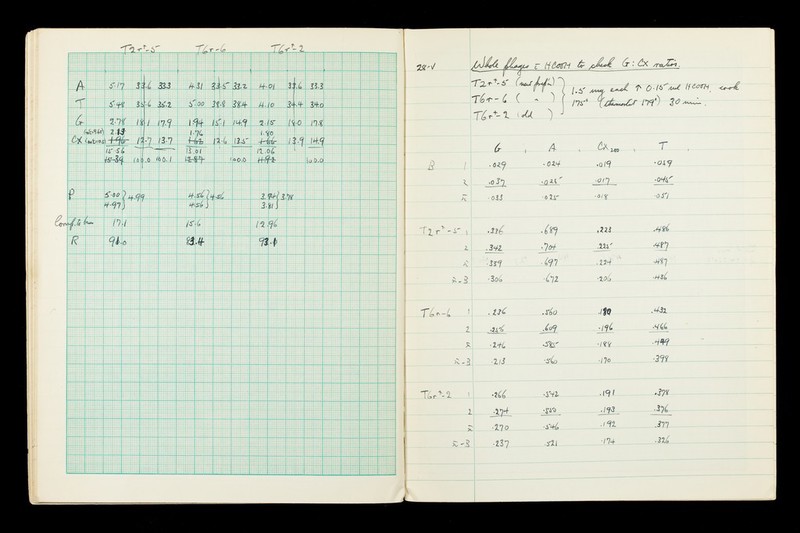 T2r⁺-5 T6r-6 T6r⁺-2
A 5.17 33.6 33.3 4.31 33.5 33.2 4.01 33.6 33.3
T 5.48 35.6 35.2 5.00 38.8 38.4 4.10 34.4 34.0
G 2.78 18.1 17.9 1.94 15.1 14.9 2.15 18.0 17.8
2.13 1.76 1.80
Cx 1.96 12.7 13.7 1.63 12.6 13.5 1.66 13.9 14.9
15.56 13.01 12.06
15.39 100.0 100.1 12.87 100.0 11.92 100.0
P 5.00 4.99 4.56 4.56 3.78
4.97 4.56 3.81
17.1 15.6 12.96
R 91.0 83.4 93.1
28.V Whole phages c HCOOH to check G : Cx ratios.
T2r⁺-5
T6r-6 ( " ) 1.5 mg. each ↑ 0.15 ml HCOOH, cook
T6r⁺-2 (old) 175° 30 min.
G, A, Cx, T,
B 1 .029 .024 .019 .059
2 .037 .025 .017 .045
x̄ .033 .025 .018 .051
T2r⁺-5 1 .689 .223 .486
2 .342 .704 .225 .487
x̄ .339 .697 .224 .487
x̄-B .306 .672 .206 .436
T6r-6 1 .236 .560 .180 .432
2 .609 .196 .466
x̄ .246 .585 .188 .449
x̄-B .213 .560 .170 .398
T6r⁺-2 1 .266 .542 .191 .378
2 .274 .550 .193 .376
x̄ .270 .546 .192 .377
x̄-B .237 .521 .174 .326